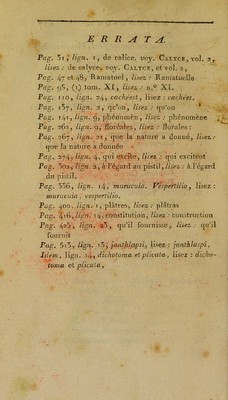 ERRATA.
Pag. 31, lign. 1, de calice, voy. CALYCE, vol. 2,
lisez : de calyce, voy. CALYCE, et vol. 2,
Pag. 47 et 48, Ramatuel, lisez : Ramatuelle
Pag. 95, (1) tom. XI, lisez : n.° XI.
Pag. 110, lign. 24, cachéest, lisez : cachées.
Pag. 137, lign. 2, qc'on, lisez : qu'on
Pag. 141, lign. 9, phénomén, lisez : phénomène
Pag. 260, lign. 9, floréales, lisez : florales :
Pag. 267, lign. 21, que la nature a donné, lisez :
que la nature a donnée
Pag. 274, lign. 4, qui excite, lisez : qui excitent
Pag. 302, lign. 2, à l'égard au pistil, lisez : à l'égard
du pistil.
Pag. 336, lign. 14, murucuia. Vespertilio, lisez :
murucuia, vespertilio.
Pag. 400, lign. 1, plâtres, lisez : plâtras
Pag. 416, lign. 14, constitution, lisez : construction
Pag. 425, lign. 23, qu'il fournisse, lisez : qu'il
fournit
Pag. 513, lign. 13, janthlapsi, lisez : jonthlaspi.
Idem, lign. 14, dichotoma et plicata, lisez : dicho-
toma et plicata,